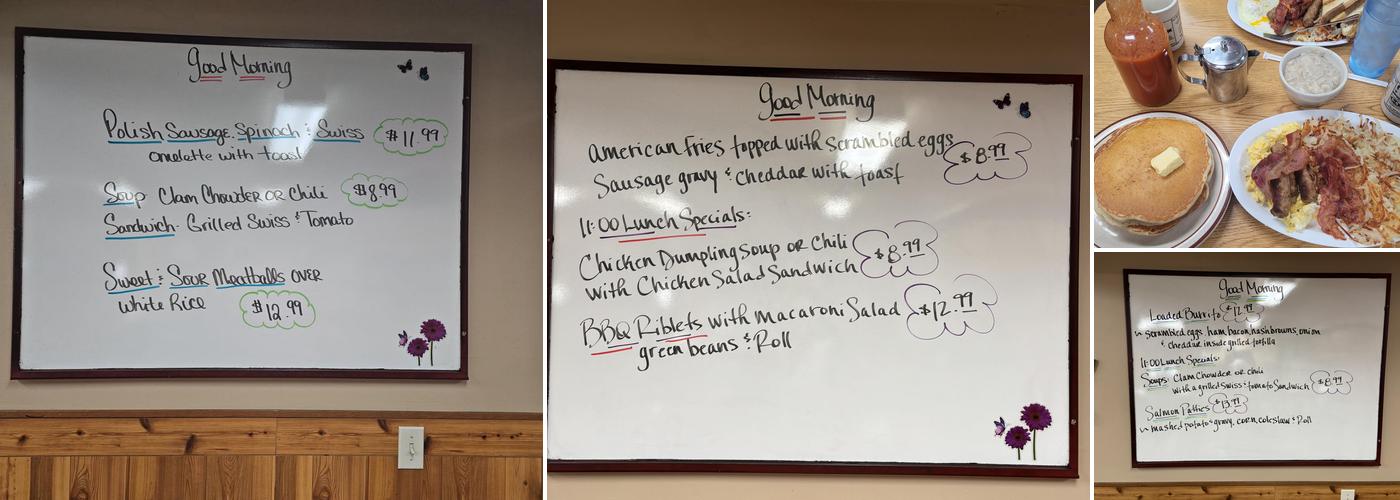 Good Morning
Polish Sausage, Spinach & Swiss $11.99
omelette with toast
Soup Clam Chowder OR Chili $8.99
Sandwich- Grilled Swiss & Tomato
Sweet & Sour Meatballs OVER
White Rice $12.99
Good Morning
American Fries topped with scrambled eggs $8.99
Sausage gravy & cheddar with toast
11:00 Lunch Specials:
Chicken Dumpling Soup OR Chili
with Chicken Salad Sandwich $8.99
BBQ Riblets with macaroni Salad $12.99
green beans & Roll
Good Morning
Loaded Burrito $12.99
~ scrambled eggs, ham, bacon, hashbrowns, onion
& cheddar inside grilled tortilla
11:00 Lunch Specials:
Soups: Clam Chowder OR chili
with a grilled Swiss & tomato Sandwich $8.99
Salmon Patties $13.99
~ mashed potato & gravy, corn, coleslaw & Roll